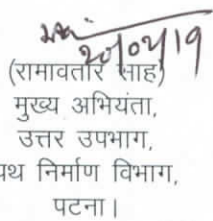 20/04/19
(रामावतार साह)
मुख्य अभियंता,
उत्तर उपभाग,
पथ निर्माण विभाग,
पटना।